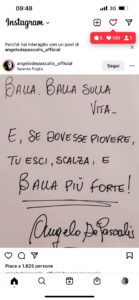 09:48
Instagram
5
100
5
Perché hai interagito con un post di
angelodepascalis_official
angelodepascalis_official
Salento Puglia
Segui
BALLA. BALLA SULLA
VITA..
E, SE DOVESSE PIOVERE,
TU ESCI, SCALZA, E
BALLA PIÙ FORTE!
Angelo De Pascalis
Piace a 1.825 persone